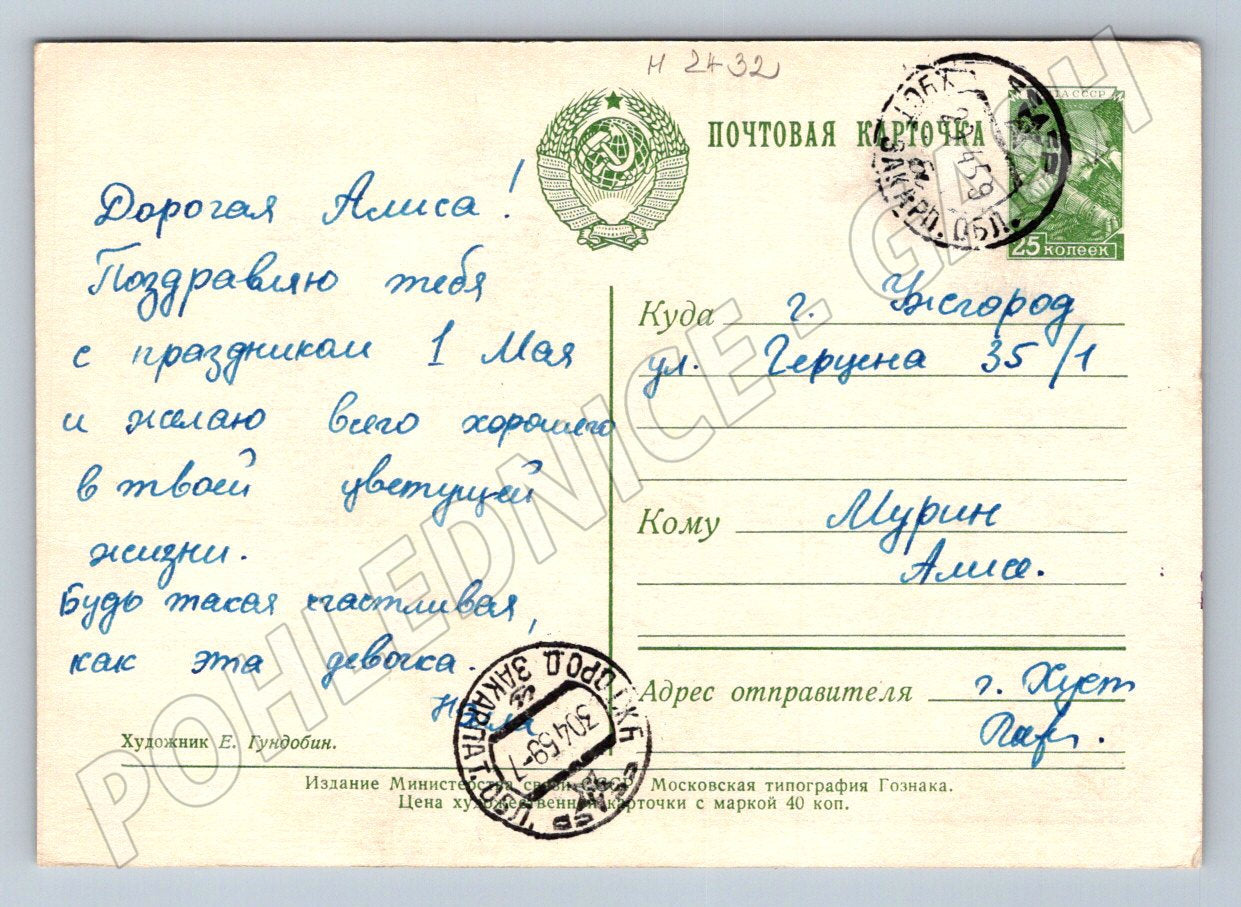 н 2432
ПОЧТОВАЯ КАРТОЧКА
СССР
25 КОПЕЕК
ХУСТ ЗАКАРП. ОБЛ.
Дорогая Алиса!
Поздравляю тебя
с праздником 1 Мая
и желаю всего хорошего
в твоей цветущей
жизни.
Будь такая счастливая,
как эта девочка.
Куда г. Ужгород
ул. Герцена 35/1
Кому Мурин
Алисе.
Адрес отправителя г. Хуст
УЖГОРОД ЗАКАРПАТ.
30459-7
Художник Е. Гундобин.
Издание Министерства связи СССР. Московская типография Гознака.
Цена художественной карточки с маркой 40 коп.
POHLEDNICE - GASH